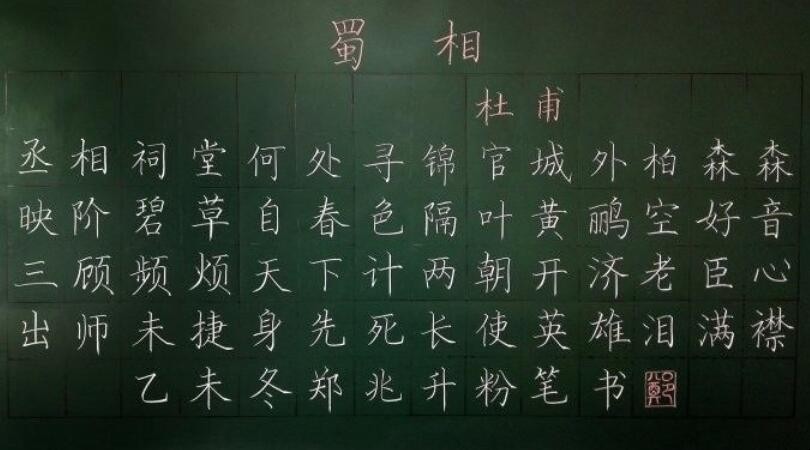 蜀相
杜甫
丞相祠堂何处寻锦官城外柏森森
映阶碧草自春色隔叶黄鹂空好音
三顾频烦天下计两朝开济老臣心
出师未捷身先死长使英雄泪满襟
乙未冬郑兆升粉笔书
鄭